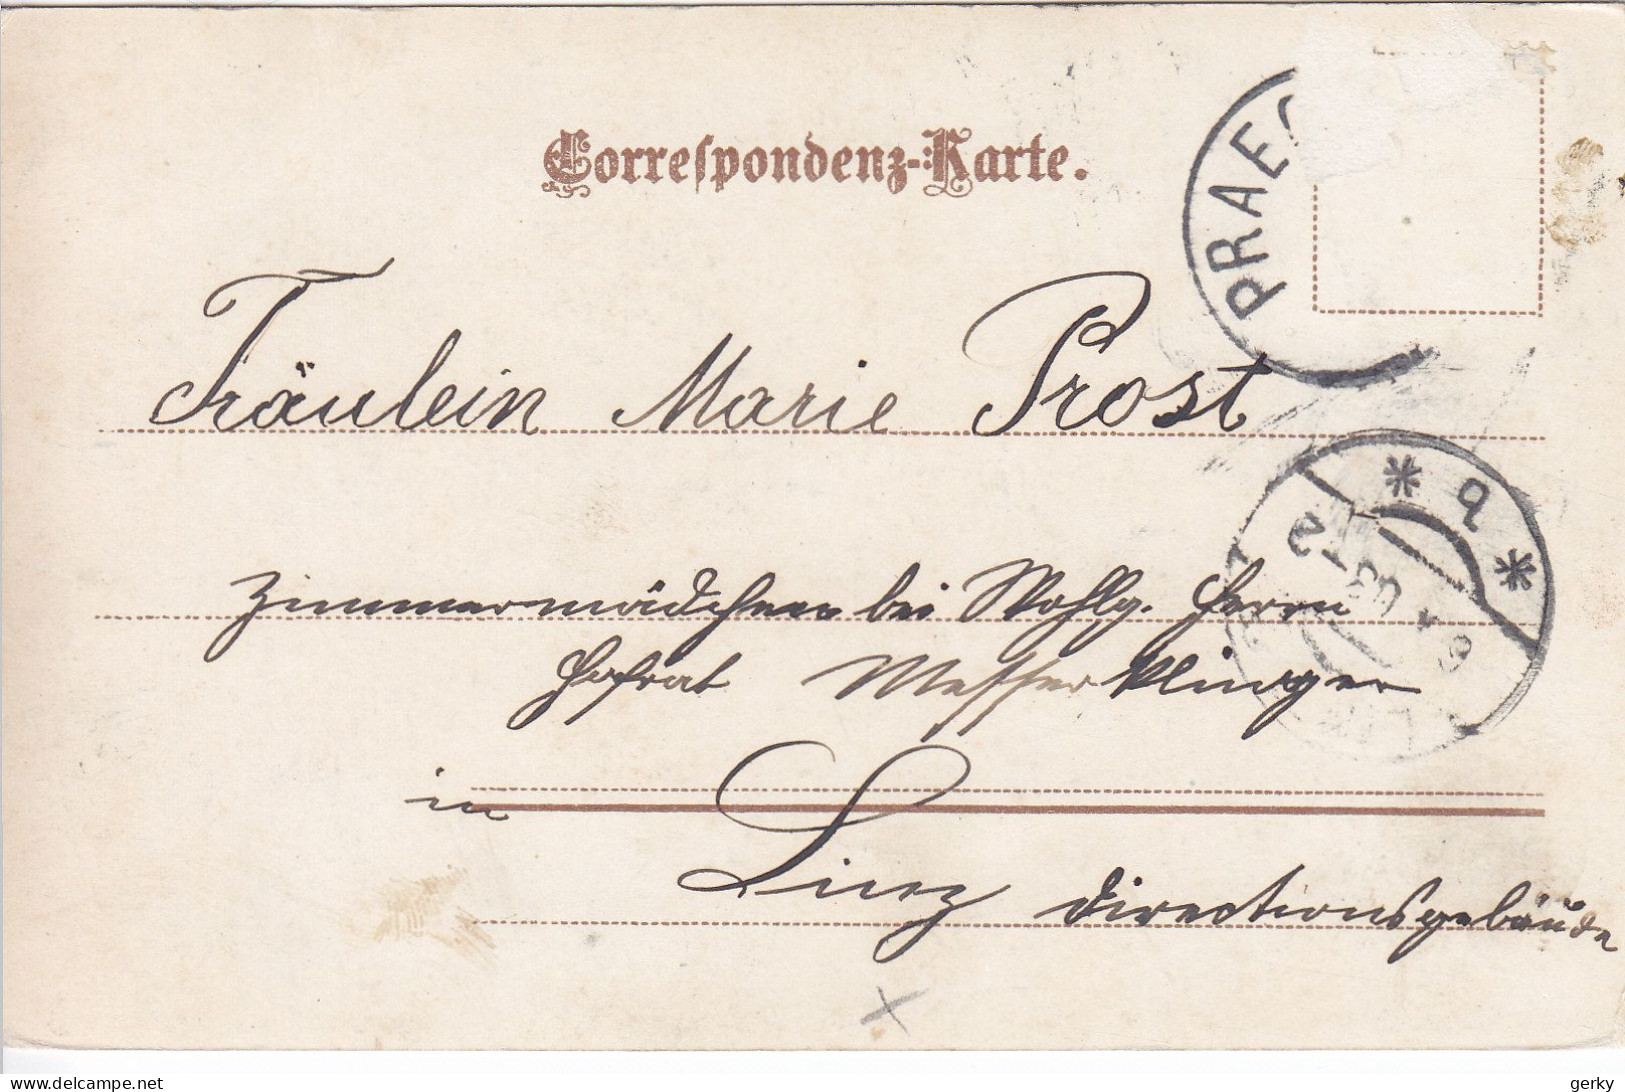 Correspondenz-Karte.
PRAE
Fräulein Marie Prost
* b *
Zimmermädchen bei Wohlg. Herrn
Hofrat Messerklinger
in
Linz Directionsgebäude
delcampe.net
gerky